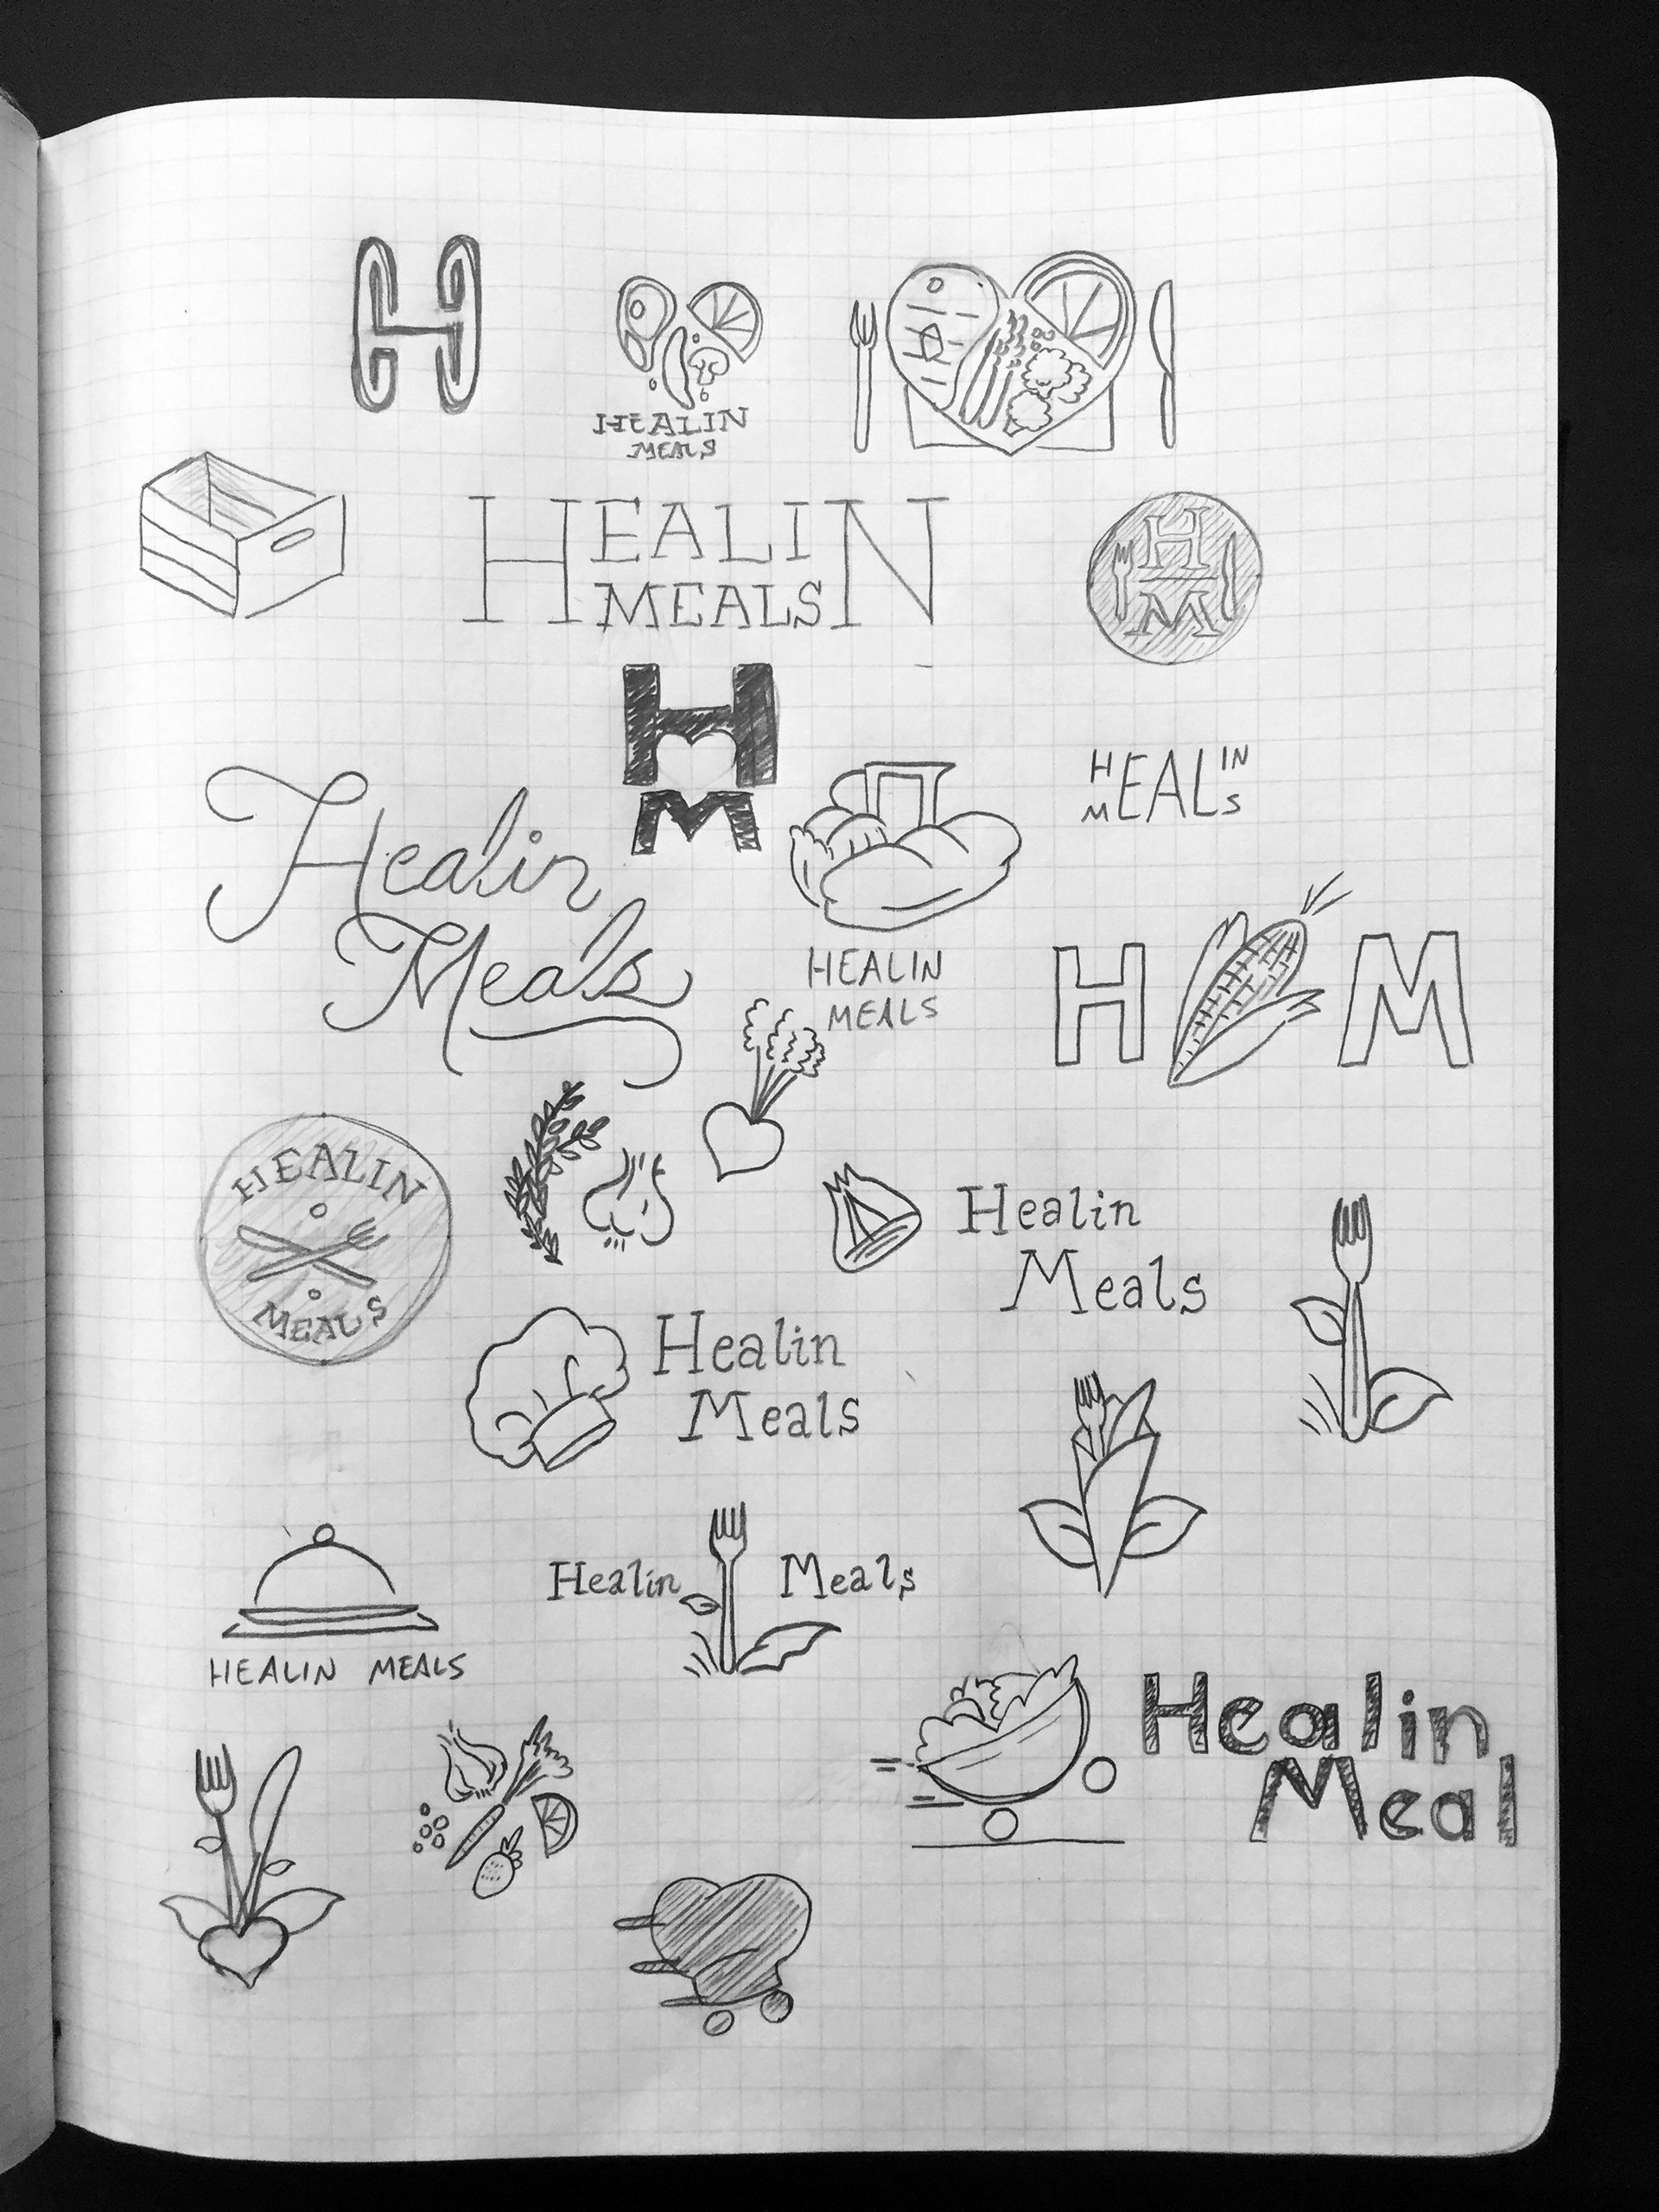 H
HEALIN
MEALS
HEALIN
MEALS
H
M
H
M
HEALIN
MEALS
Healin
Meals
HEALIN
MEALS
H M
HEALIN
MEALS
Healin
Meals
Healin
Meals
Healin Meals
HEALIN MEALS
Healin
Meal